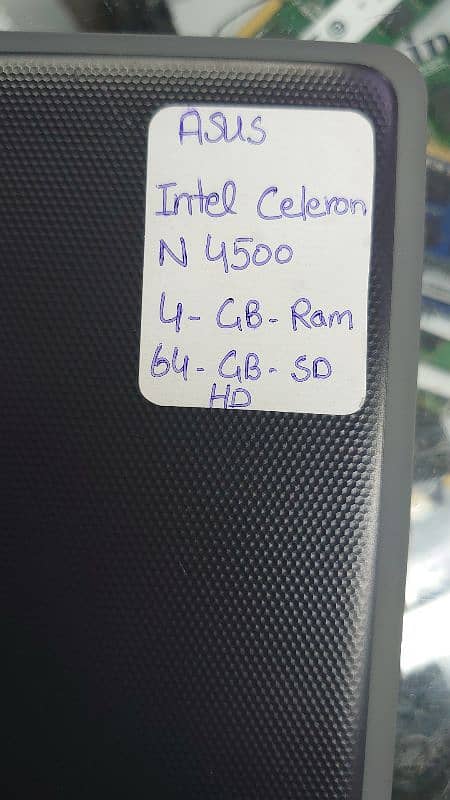 ASUS
Intel Celeron
N 4500
4-GB-Ram
64-GB-SD
HD